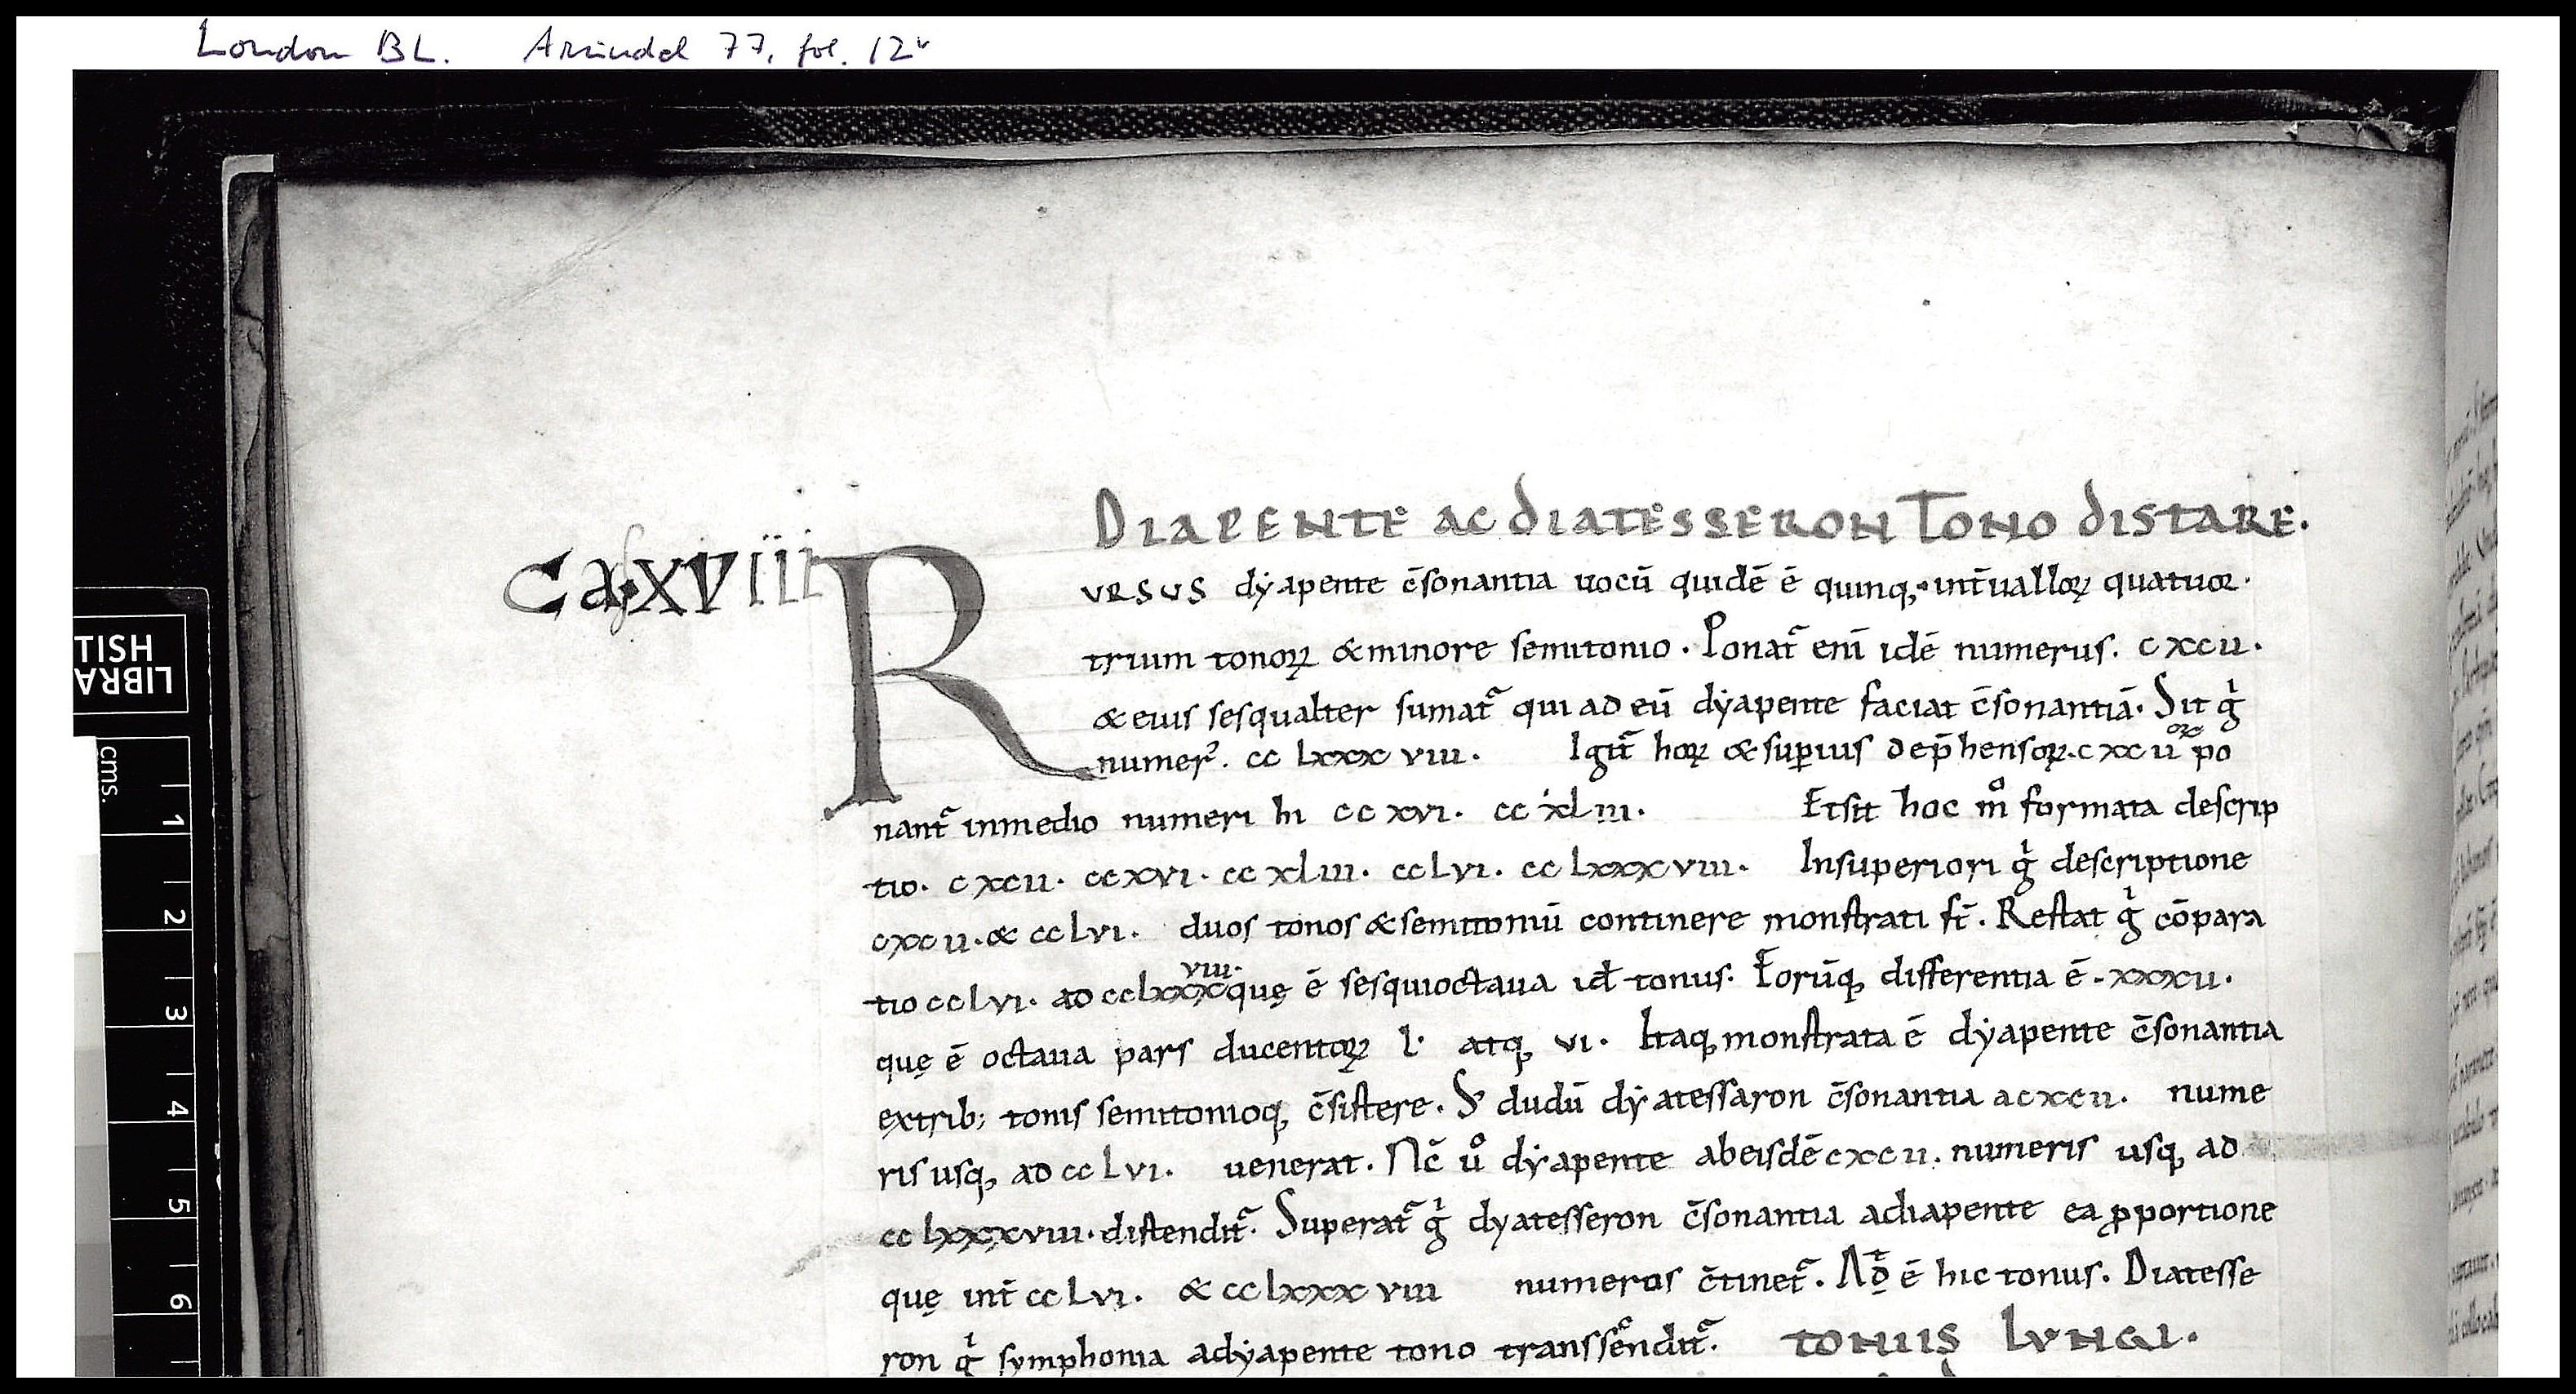 London BL. Arundel 77, fol. 12v
DIAPENTE AC DIATESSERON TONO DISTARE.
Cap XVIII
RVRSUS dẏapente c̄sonantia uocū quidē ē quinq;· int̄uallorꝝ quatuor·
trium tonoꝝ & minore semitonio. Ponat᷑ enī idē numerus. cxcii.
& eius sesqualter sumat᷑ qui ad eū dẏapente faciat c̄sonantiā. Sit g̊
numer᷒. cc lxxx viii. Igit᷑ hoꝝ & suꝑius dep̄hensoꝝ. cxcii orꝝ po
nant᷑ inmedio numeri hi cc xvi. cc xliii. Et sit hoc m̊ formata descrip
tio. cxcii. ccxvi. cc xliii. cc lvi. cc lxxxviii. Insuperiori g̊ descriptione
cxcii. & cc lvi. duos tonos & semitoniū continere monstrati st̄. Restat g̊ cōpara
tio cc lvi. ad cclxxx viii. quę ē sesquioctaua id̄ tonus. Eorūq; differentia ē. xxxii.
quę ē octaua pars ducentoꝝ l. atq; vi. Itaq; monstrata ē dẏapente c̄sonantia
extrib; tonis semitonioq; c̄sistere. S; dudū dẏatessaron c̄sonantia acxcii. nume
ris usq; ad cc lvi. uenerat. Nc̄ ů dẏapente abeisdē cxcii. numeris usq; ad
cc lxxxviii. distendit᷑. Superat᷑ g̊ dyatesseron c̄sonantia adiapente ea ꝓportione
quę int̄ cc lvi. & cc lxxx viii numerus c̄tinet᷑. Ad̄ ē hic tonus. Diatesse
ron g̊ symphonia adẏapente tono transsendit᷑. TONIIS IVNGI.
BRITISH
LIBRA
cms.
1
2
3
4
5
6